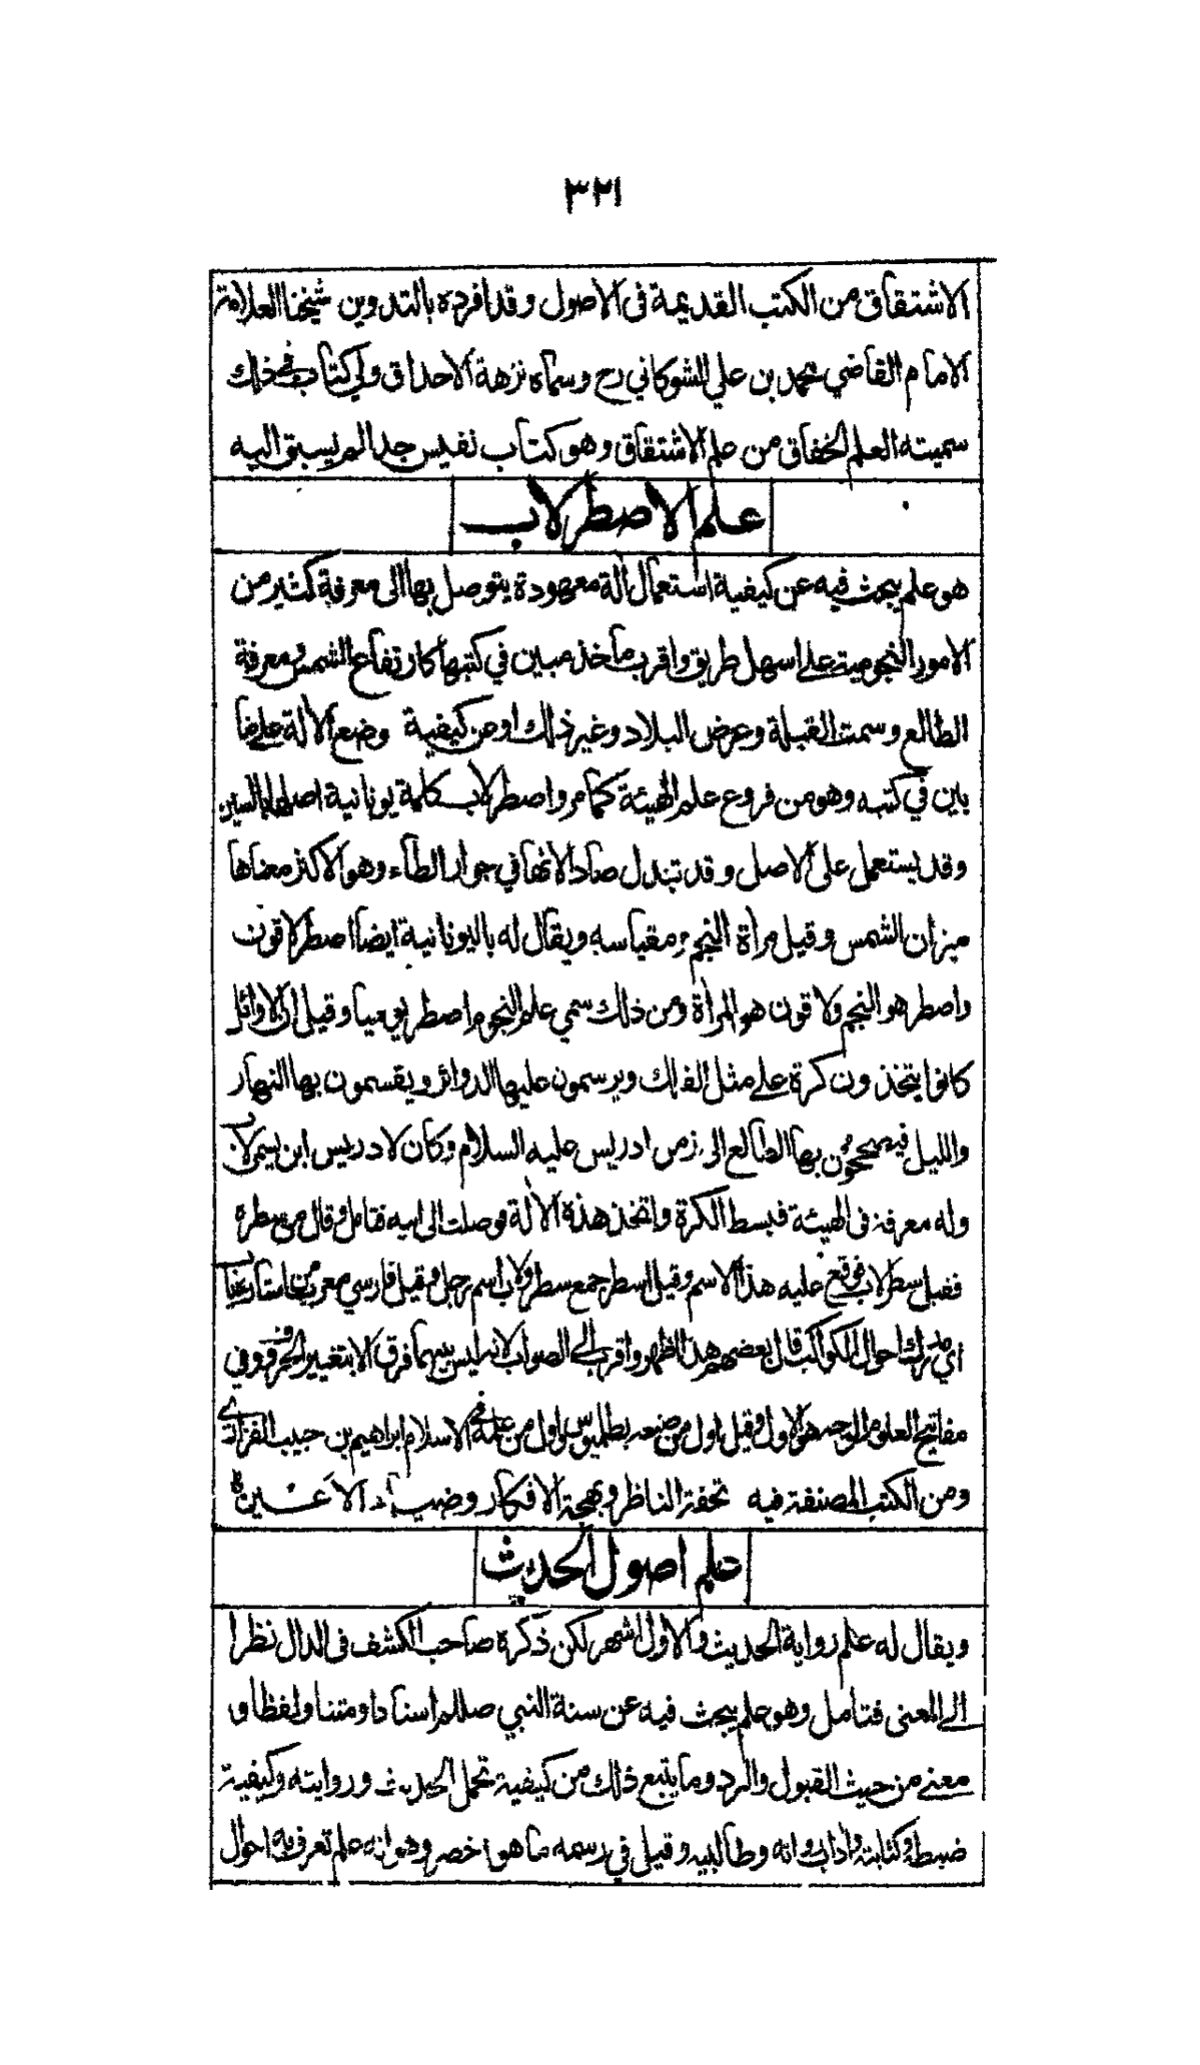 ٣٢١
الاشتقاق من الكتب القديمة فى الاصول وقد افرده بالتدوين شيخنا العلامة
الامام القاضي محمد بن علي الشوكاني رح وسماه نزهة الاحداق ولي كتاب في ذلك
سميته العلم الخفاق من علم الاشتقاق وهو كتاب نفيس جدا لم يسبق اليه
علم الاصطرلاب
هو علم يبحث فيه عن كيفية استعمال آلة معهودة يتوصل بها الى معرفة كثير من
الامور النجومية على اسهل طريق واقرب ماخذ مبين في كتبها كارتفاع الشمس ومعرفة
الطالع وسمت القبلة وعرض البلاد وغير ذلك او من كيفية وضع الآلة على ما
بين في كتبه وهو من فروع علم الهيئة كما مر واصطرلاب كلمة يونانية اصلها بالسين
وقد يستعمل على الاصل وقد تبدل صادا لانها في جوار الطاء وهو الاكثر معناها
ميزان الشمس وقيل مرآة النجم ومقياسه ويقال له باليونانية ايضا اصطرلاقون
واصطر هو النجم ولاقون هو المرآة ومن ذلك سمي علم النجوم اصطريوميا وقيل ان الاوائل
كانوا يتخذون كرة على مثل الفلك ويرسمون عليها الدوائر ويقسمون بها النهار
والليل فيصححون بها الطالع الى زمن ادريس عليه السلام وكان لادريس ابن يسمى لاب
وله معرفة فى الهيئة فبسط الكرة واتخذ هذه الآلة فوصلت الى ابيه فتامل وقال من سطره
فقيل سطرلاب فوقع عليه هذا الاسم وقيل اسطر جمع سطر ولاب اسم رجل وقيل فارسي معرب من استاره ياب
اي مدرك احوال الكواكب قال بعضهم هذا اظهر واقرب الى الصواب لانه ليس بينهما فرق الا بتغيير الحروف وفي
مفاتيح العلوم الوجه هو الاول وقيل اول من صنعه بطلميوس واول من عمله في الاسلام ابراهيم بن حبيب الفزاري
ومن الكتب المصنفة فيه تحفة الناظر وبهجة الافكار وضياء الاعين
علم اصول الحديث
ويقال له علم رواية الحديث والاول اشهر لكن ذكره صاحب الكشف فى الدال نظرا
الى المعنى فتامل وهو علم يبحث فيه عن سنة النبي صللم اسنادا ومتنا ولفظا و
معنى من حيث القبول والرد وما يتبع ذلك من كيفية تحمل الحديث وروايته وكيفية
ضبطه وكتابته وآداب رواته وطالبيه وقيل في رسمه ما هو اخصر وهو انه علم تعرف به احوال